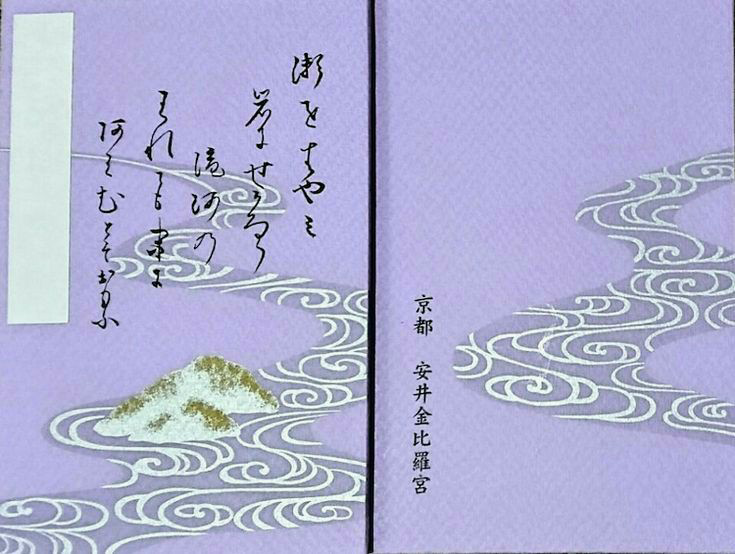 瀬をはやみ
岩にせかるる
瀧河の
われても末に
阿はむとそおもふ
京都 安井金比羅宮